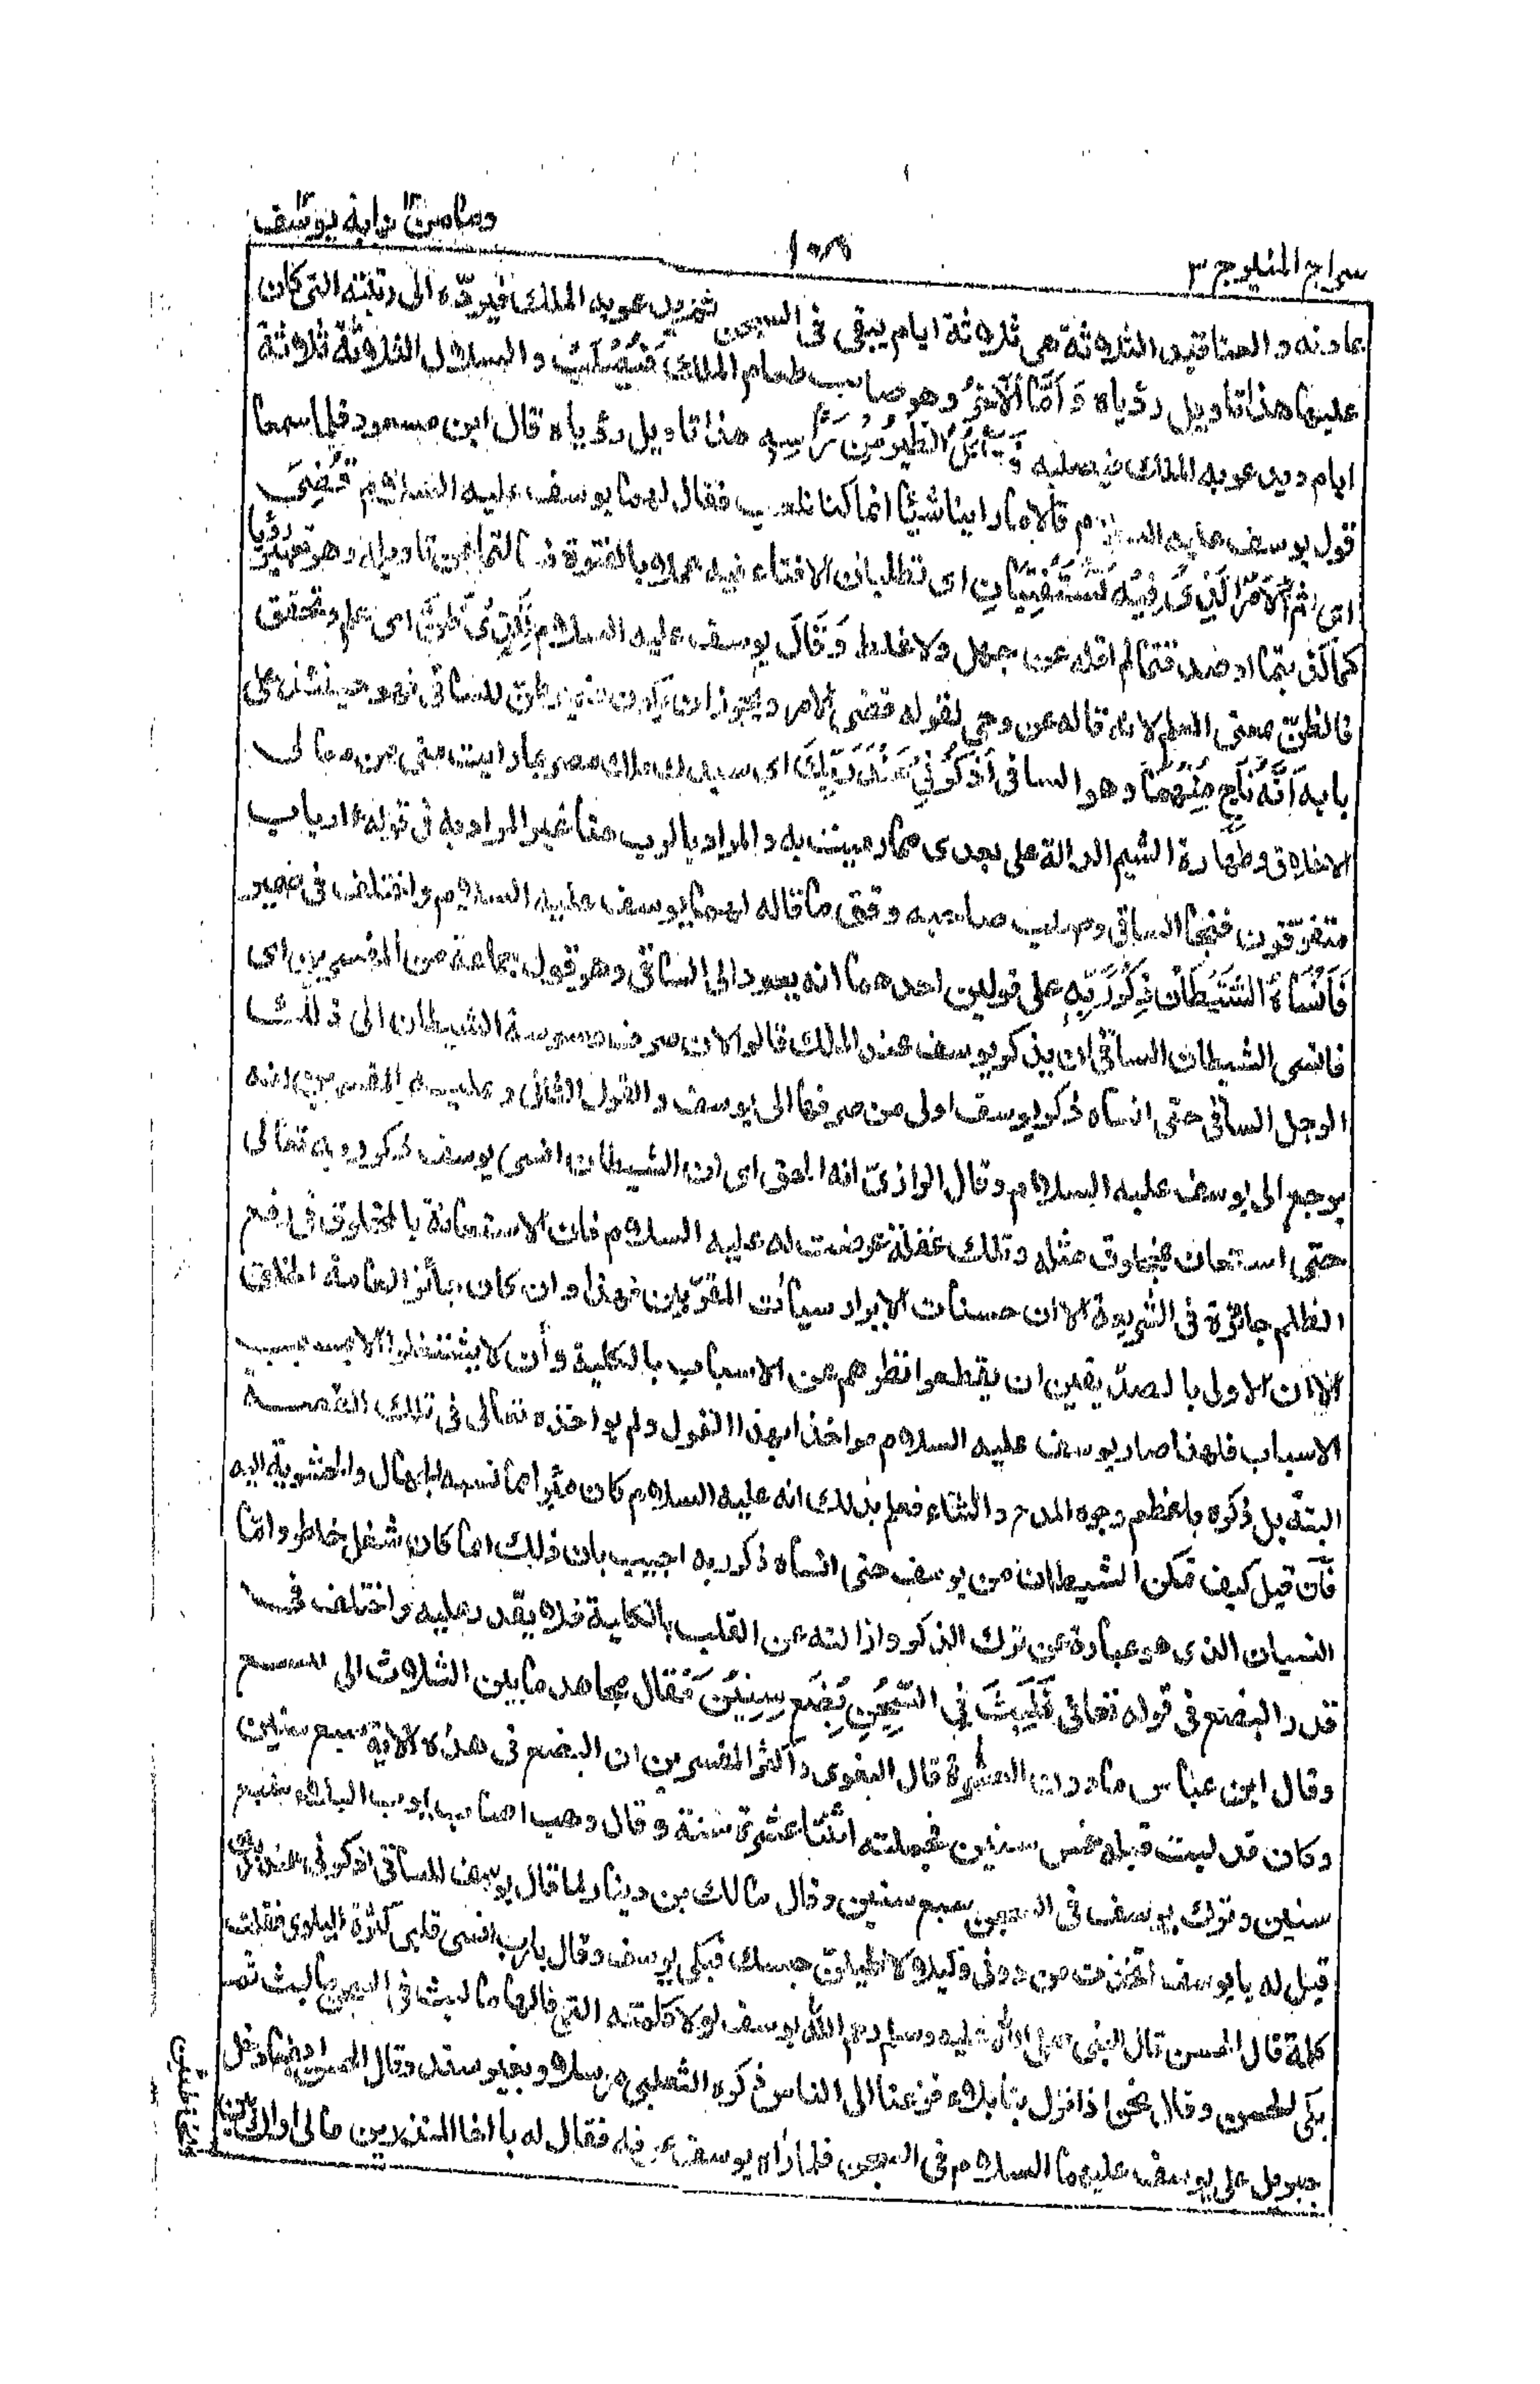 سراج المنير ج ٣
١٥٨
وما من دابة يوسف
بعادته والعناقيد الثلاثة هى ثلاثة ايام يبقى فى السجن ثم يدعو به الملك فيرده الى رتبته التى كان
عليها هذا تاويل رؤياه وَأَمَّا الْآخَرُ وهو صاحب طعام الملك فَيُصْلَبُ والسلال الثلاثة ثلاثة
ايام ويدعو به الملك فيصلبه فَتَأْكُلُ الطَّيْرُ مِنْ رَأْسِهِ هذا تاويل رؤياه قال ابن مسعود فلما سمعا
قول يوسف عليه السلام قالا ما راينا شيئا انما كنا نلعب فقال لهما يوسف عليه السلام قُضِيَ
اى تم الْأَمْرُ الَّذِي فِيهِ تَسْتَفْتِيَانِ اى تطلبان الافتاء فيه عملا بالفتوة فسالتما عن تاويله وهو تعبير رؤيا
كما كذبتما او صدقتما لم اقله عن جهل ولا غلط وَقَالَ يوسف عليه السلام لِلَّذِي ظَنَّ اى علم وتحقق
فالظن بمعنى العلم لانه قاله عن وحي لقوله قضى الامر ويجوز ان يكون ضمير ظن للساقى فهو حينئذ على
بابه أَنَّهُ نَاجٍ مِنْهُمَا وهو الساقى اذْكُرْنِي عِنْدَ رَبِّكَ اى سيدك ملك مصر بما رايت منى من معالى
الاخلاق وطهارة الشيم الدالة على بعدى مما رميت به والمراد بالرب هنا غير المراد به فى قوله ءارباب
متفرقون فنجا الساقى وصلب صاحبه وفق ما قاله لهما يوسف عليه السلام واختلف فى ضمير
فَأَنْسَاهُ الشَّيْطَانُ ذِكْرَ رَبِّهِ على قولين احدهما انه يعود الى الساقى وهو قول جماعة من المفسرين اى
فانسى الشيطان الساقى ان يذكر يوسف عند الملك قالوا لان صرف وسوسة الشيطان الى ذلك
الرجل الساقى حتى انساه ذكر يوسف اولى من صرفها الى يوسف والقول الثانى وعليه المفسرين انه
يرجع الى يوسف عليه السلام وقال الرازى انه الحق اى ان الشيطان انسى يوسف ذكر ربه تعالى
حتى استعان بمخلوق مثله وتلك غفلة عرضت له عليه السلام فان الاستعانة بالمخلوق فى دفع
الظلم جائزة فى الشريعة الا ان حسنات الابرار سيأت المقربين فهذا وان كان جائزا لعامة الخلق
الا ان الاولى بالصديقين ان يقطعوا نظرهم عن الاسباب بالكلية وأن لا يشتغلوا الا بمسبب
الاسباب فلهذا صار يوسف عليه السلام مواخذا بهذا القول ولم يواخذه تعالى فى تلك القصة
البتة بل ذكره باعظم وجوه المدح والثناء فعلم بذلك انه عليه السلام كان مبرا مما نسبه الجهال والحشوية اليه
فان قيل كيف تمكن الشيطان من يوسف حتى انساه ذكر ربه اجيب بان ذلك انما كان شغل خاطر وامّا
النسيان الذى هو عبارة عن ترك الذكر وازالته عن القلب بالكلية فلا يقدر عليه واختلف فى
قدر البضع فى قوله تعالى فَلَبِثَ فِي السِّجْنِ بِضْعَ سِنِينَ فقال مجاهد ما بين الثلاث الى السبع
وقال ابن عباس ما دون العشرة قال البغوى وأكثر المفسرين ان البضع فى هذه الاية سبع سنين
وكان قد لبث قبله خمس سنين فجملته اثنتا عشرة سنة وقال وهب اصاب ايوب البلاء سبع
سنين وترك يوسف فى السجن سبع سنين وقال مالك بن دينار لما قال يوسف للساقى اذكرنى عند ربك
قيل له يا يوسف اتخذت من دونى وكيلا لاطيلن حبسك فبكى يوسف وقال يا رب انسى قلبى كثرة البلوى فقلت
كلمة قال الحسن قال النبى صلى الله عليه وسلم رحم الله يوسف لولا كلمته التى قالها ما لبث فى السجن ما لبث ثم
بكى الحسن وقال نحن اذا نزل بنا بلاء فزعنا الى الناس ذكره الثعلبى مرسلا وبغير سند وقال ايضا دخل
جبريل على يوسف عليهما السلام فى السجن فلما رأه يوسف عرفه فقال له يا اخا المنذرين مالى اراك بين